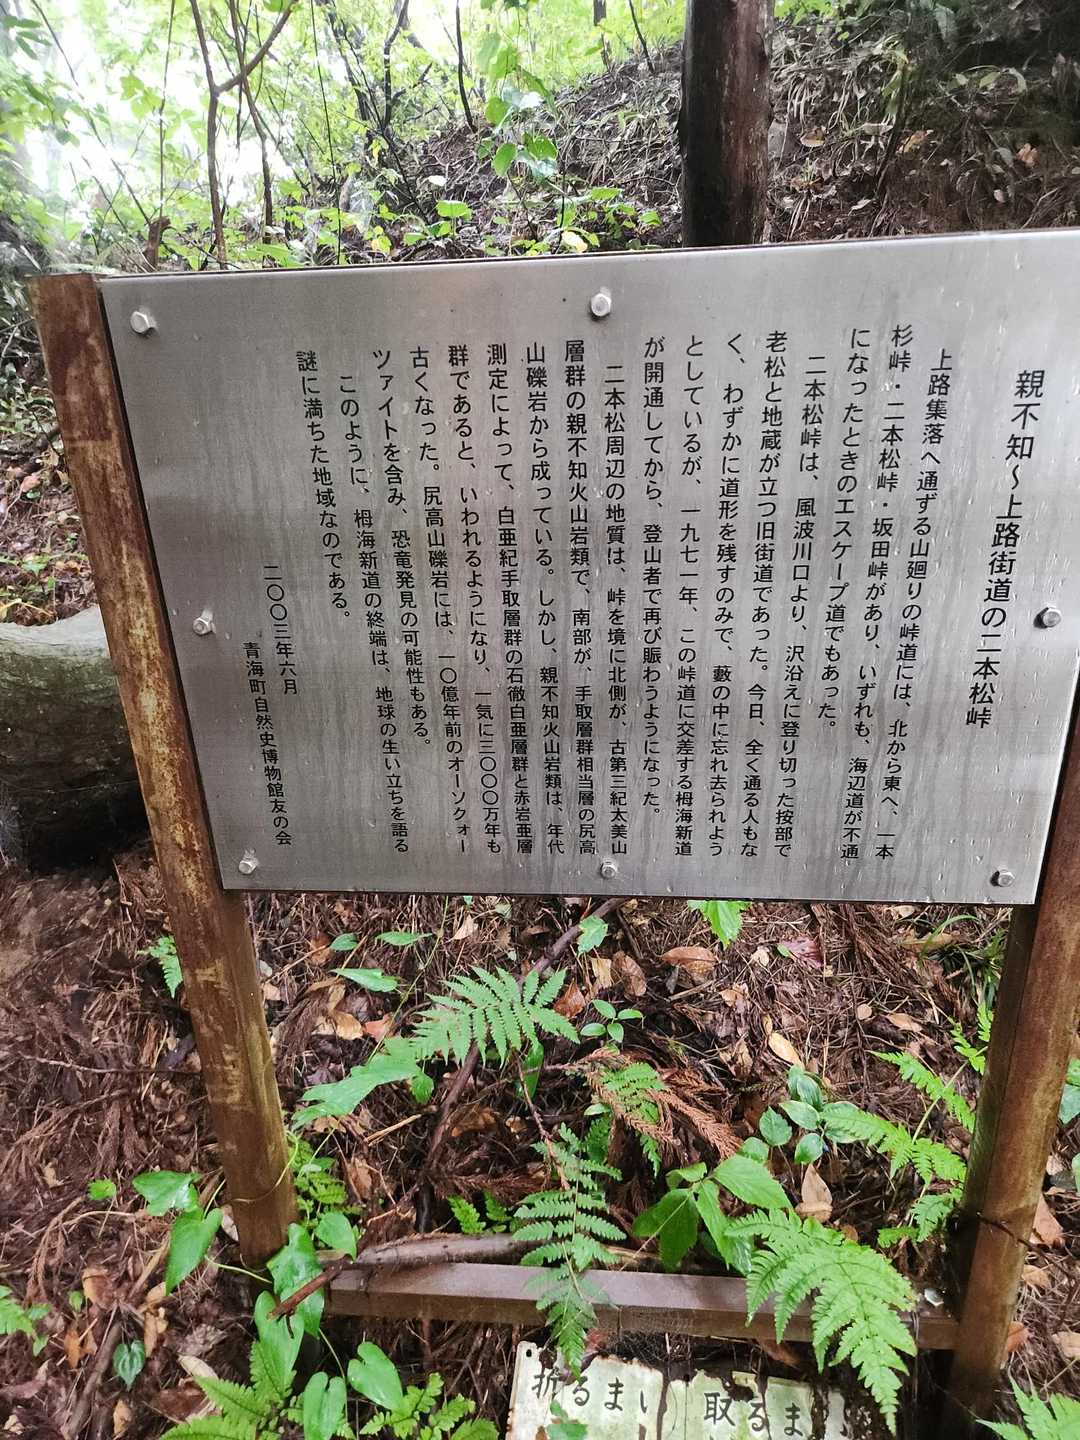 親不知～上路街道の二本松峠
上路集落へ通ずる山廻りの峠道には、北から東へ、一本
杉峠・二本松峠・坂田峠があり、いずれも、海辺道が不通
になったときのエスケープ道でもあった。
二本松峠は、風波川口より、沢沿えに登り切った按部で
老松と地蔵が立つ旧街道であった。今日、全く通る人もな
く、わずかに道形を残すのみで、藪の中に忘れ去られよう
としているが、一九七一年、この峠道に交差する栂海新道
が開通してから、登山者で再び賑わうようになった。
二本松周辺の地質は、峠を境に北側が、古第三紀太美山
層群の親不知火山岩類で、南部が、手取層群相当層の尻高
山礫岩から成っている。しかし、親不知火山岩類は、年代
測定によって、白亜紀手取層群の石徹白亜層群と赤岩亜層
群であると、いわれるようになり、一気に三〇〇〇万年も
古くなった。尻高山礫岩には、一〇億年前のオーソクォー
ツァイトを含み、恐竜発見の可能性もある。
このように、栂海新道の終端は、地球の生い立ちを語る
謎に満ちた地域なのである。
二〇〇三年六月
青海町自然史博物館友の会
折るまい 取るま